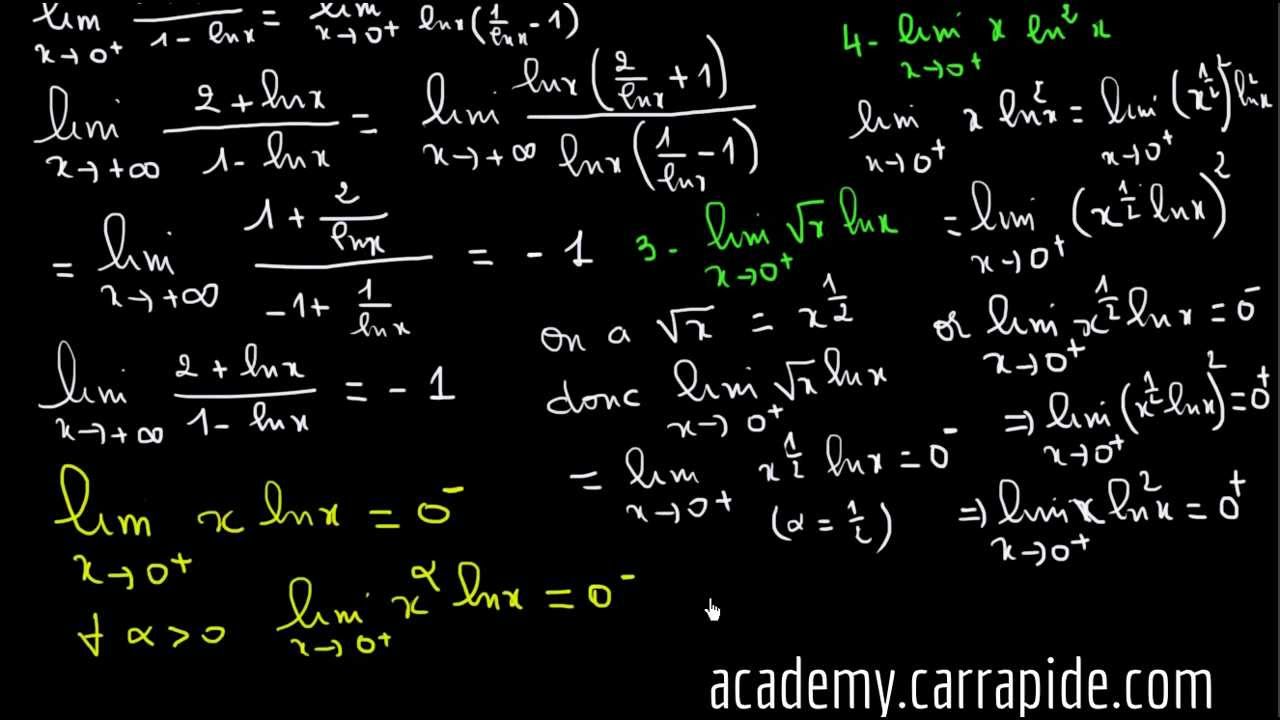 lim x→0⁺ 1 - lnx = lim x→0⁺ lnx(1/lnx - 1)
lim x→+∞ (2 + lnx)/(1 - lnx) = lim x→+∞ lnx(2/lnx + 1)/lnx(1/lnx - 1)
= lim x→+∞ (1 + 2/lnx)/(-1 + 1/lnx) = - 1
lim x→+∞ (2 + lnx)/(1 - lnx) = - 1
lim x→0⁺ x lnx = 0⁻
∀ α > 0 lim x→0⁺ x^α lnx = 0⁻
3 - lim x→0⁺ √x lnx
on a √x = x^(1/2)
donc lim x→0⁺ √x lnx
= lim x→0⁺ x^(1/2) lnx = 0⁻
(α = 1/2)
4 - lim x→0⁺ x ln² x
lim x→0⁺ x ln²x = lim x→0⁺ (x^(1/2))² ln²x
= lim x→0⁺ (x^(1/2) lnx)²
or lim x→0⁺ x^(1/2) lnx = 0⁻
⇒ lim x→0⁺ (x^(1/2) lnx)² = 0⁺
⇒ lim x→0⁺ x ln²x = 0⁺
academy.carrapide.com